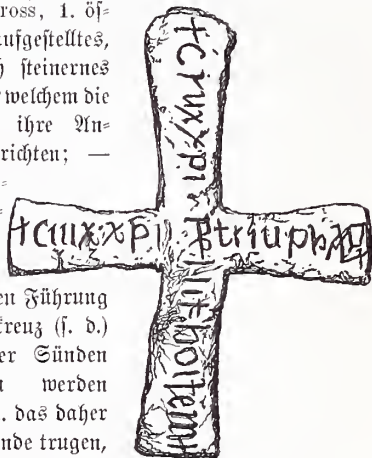 ross, 1. öſ=
ufgeſtelltes,
ſteinernes
welchem die
ihre An=
richten; —
en Führung
kreuz (ſ. d.)
er Sünden
werden
. das daher
nde trugen,
+crux·xpi
+cıııx·xpı
triu·ph